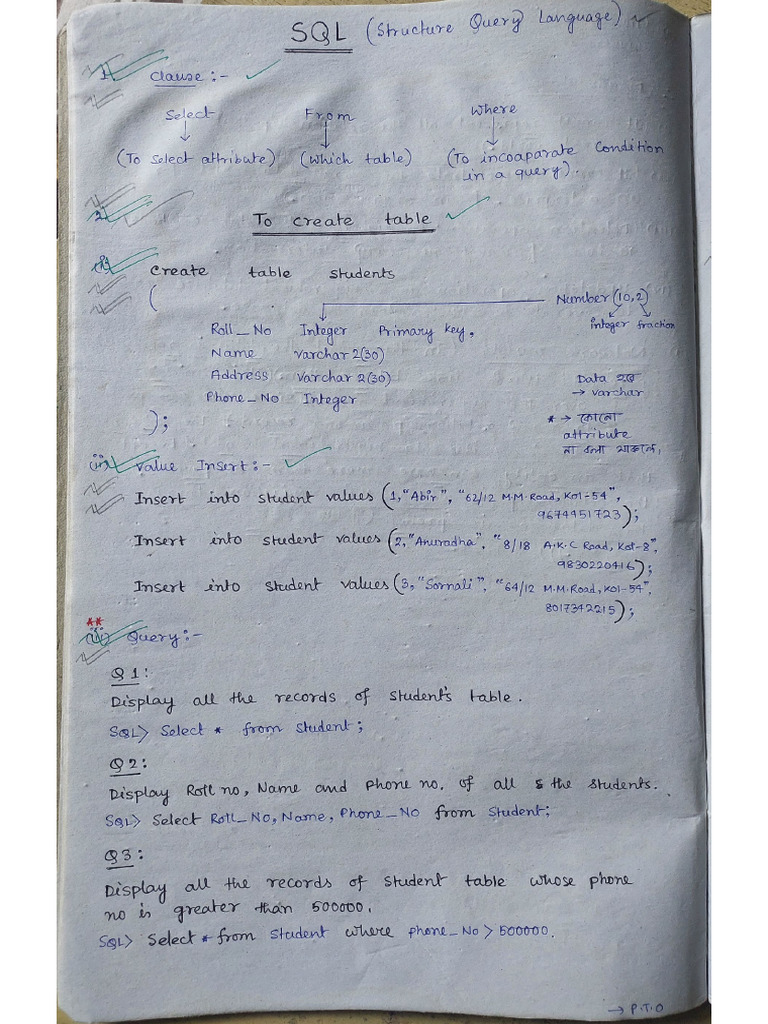 SQL (Structure Query Language)
1. Clause :-
Select From Where
(To select attribute) (Which table) (To incoaparate Condition
in a query).
2. To create table
(i) Create table students
( Number (10,2)
integer fraction
Roll_No Integer Primary key,
Name varchar 2(30)
Address varchar 2(30)
Phone_No Integer
);
Data হবে
→ varchar
* → কোনো
attribute
না বলা থাকলে,
(ii) Value Insert :-
Insert into student values (1, "Abir", "62/12 M.M. Road, Kol-54",
9674951723);
Insert into student values (2, "Anuradha", "8/18 A.K.C Road, Kol-8",
9830220416);
Insert into student values (3, "Sornali", "64/12 M.M. Road, Kol-54",
8017342215);
**
(iii) Query :-
Q 1 :
Display all the records of student's table.
SQL> Select * from Student;
Q 2 :
Display Roll no, Name and Phone no. of all the students.
SQL> Select Roll_No, Name, Phone_No from Student;
Q 3 :
Display all the records of student table whose phone
no is greater than 500000.
SQL> Select * from Student where phone_No > 500000.
→ P.T.O